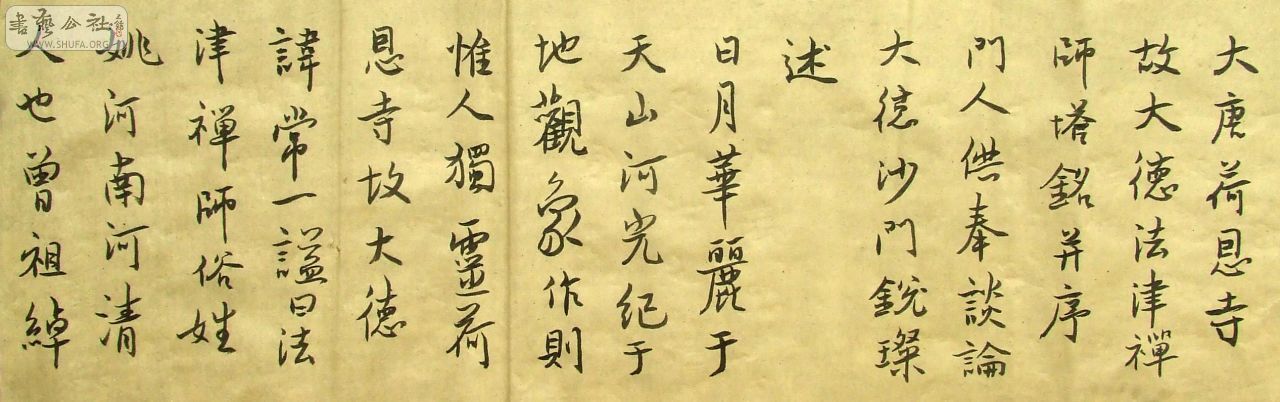 大唐荷恩寺
故大德法津禪
師塔銘并序
門人供奉談論
大德沙門銳璨
述
日月華麗于
天山河光紀于
地觀象作則
惟人獨靈荷
恩寺故大德
諱常一謚曰法
津禪師俗姓
姚河南河清
人也曾祖綽
書藝公社
WWW.SHUFA.ORG.CN